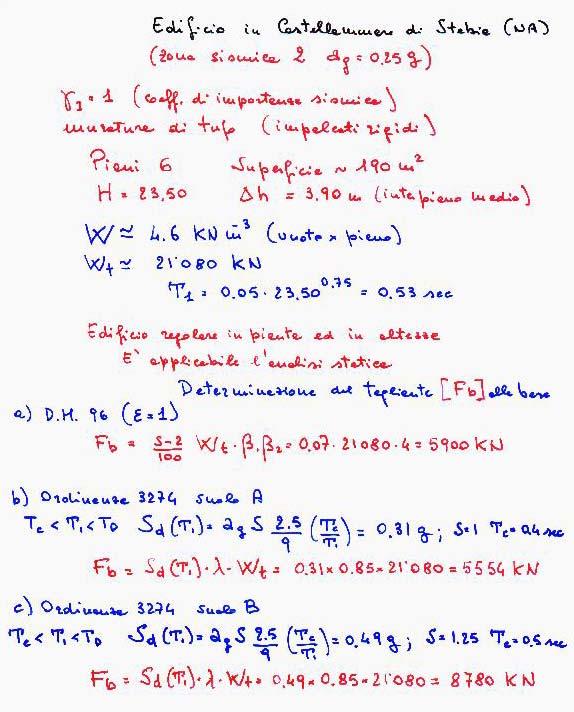 Edificio in Castellammare di Stabia (NA)
(zona sismica 2 ag = 0.25 g)
γI = 1 (coeff. di importanza sismica)
murature di tufo (impalcati rigidi)
Piani 6 Superficie ~ 190 m²
H = 23,50 Δh = 3,90 m (interpiano medio)
W ≃ 4.6 KN m̄³ (vuoto x pieno)
Wt ≃ 21'080 KN
T1 = 0.05 · 23.50^0.75 = 0.53 sec
Edificio regolare in pianta ed in altezza
E' applicabile l'analisi statica
Determinazione del tagliante [Fb] alla base
a) D.M. 96 (ε=1)
Fb = S-2/100 Wt · β1 β2 = 0.07 · 21080 · 4 = 5900 KN
b) Ordinanza 3274 suolo A
Tc < T1 < TD Sd(T1) = ag S 2.5/q (Tc/T1) = 0.31 g ; S=1 Tc=0.4 sec
Fb = Sd(T1) · λ · Wt = 0.31 x 0.85 x 21'080 = 5554 KN
c) Ordinanza 3274 suolo B
Tc < T1 < TD Sd(T1) = ag S 2.5/q (Tc/T1) = 0.49 g ; S=1.25 Tc=0.5 sec
Fb = Sd(T1) · λ · Wt = 0.49 x 0.85 x 21'080 = 8780 KN